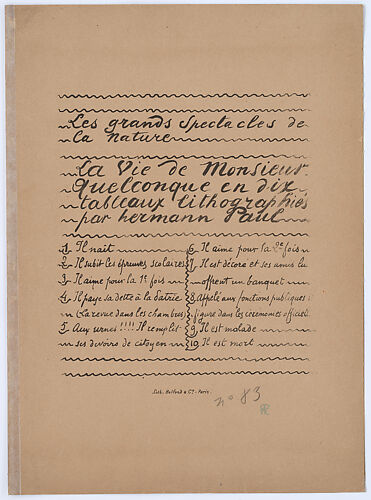 Les grands Spectacles de
la nature
La Vie de Monsieur
Quelconque en dix
tableaux lithographiés
par hermann Paul
1 Il nait
2 Il subit les épreuves scolaires
3 Il aime pour la 1e fois
4 Il paye sa dette à la Patrie
La revue dans les chambres
5 Aux urnes!!!! Il remplit
ses devoirs de citoyen
6 Il aime pour la 2e fois
7 Il est décoré et ses amis lui
offrent un banquet
8 Appelé aux fonctions publiques il
figure dans les ceremonies officiell
9 Il est malade
10 Il est mort
Lith. Belfond & Cie - Paris.
no 83